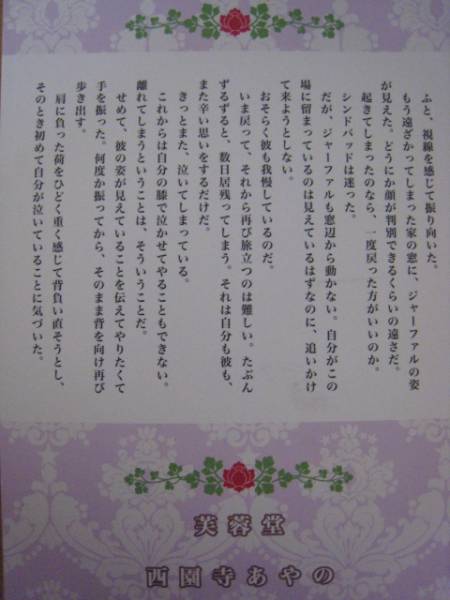 ふと、視線を感じて振り向いた。
もう遠ざかってしまった家の窓に、ジャーファルの姿
が見えた。どうにか顔が判別できるくらいの遠さだ。
起きてしまったのなら、一度戻った方がいいのか。
シンドバッドは迷った。
だが、ジャーファルも窓辺から動かない。自分がこの
場に留まっているのは見えているはずなのに、追いかけ
て来ようとしない。
おそらく彼も我慢しているのだ。
いま戻って、それから再び旅立つのは難しい。たぶん
ずるずると、数日居残ってしまう。それは自分も彼も、
また辛い思いをするだけだ。
きっとまた、泣いてしまっている。
これからは自分の膝で泣かせてやることもできない。
離れてしまうということは、そういうことだ。
せめて、彼の姿が見えていることを伝えてやりたくて
手を振った。何度か振ってから、そのまま背を向け再び
歩き出す。
肩に負った荷をひどく重く感じて背負い直そうとし、
そのとき初めて自分が泣いていることに気づいた。
芙蓉堂
西園寺あやの